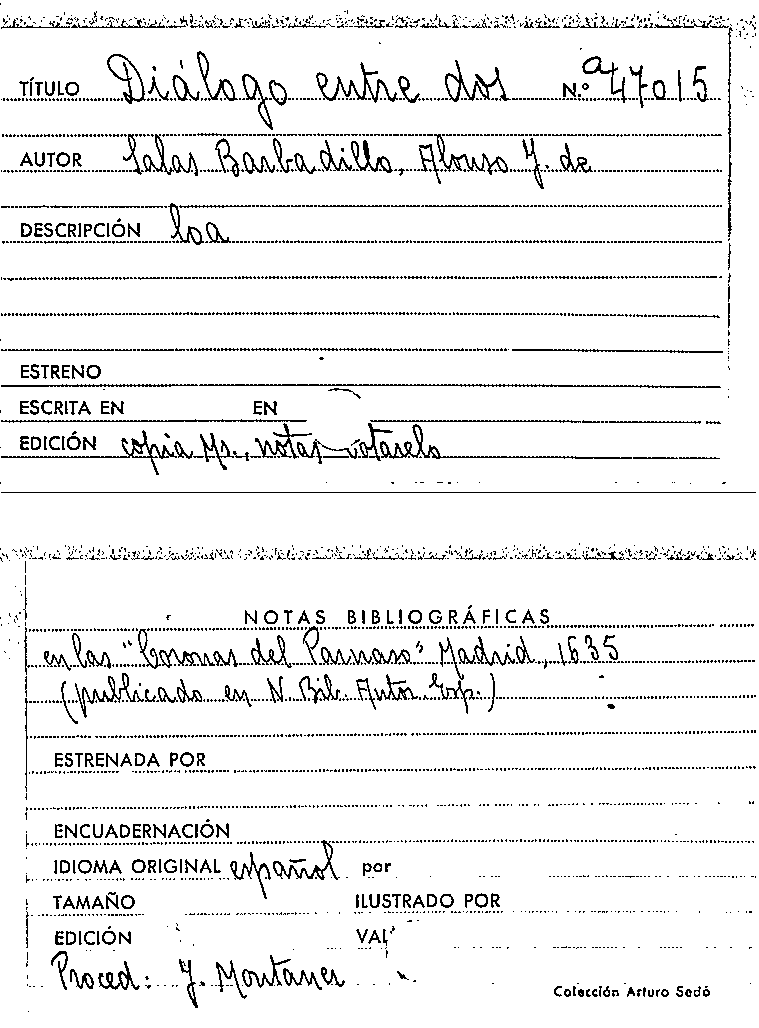 TÍTULO Diálogo entre dos N.º a 47015
AUTOR Salas Barbadillo, Alonso J. de
DESCRIPCIÓN loa
ESTRENO
ESCRITA EN EN
EDICIÓN copia Ms., notas
NOTAS BIBLIOGRÁFICAS
en las "Coronas del Parnaso" Madrid, 1635
(publicado en N. Bib. Autor. Esp.)
ESTRENADA POR
ENCUADERNACIÓN
IDIOMA ORIGINAL español por
TAMAÑO ILUSTRADO POR
EDICIÓN VAL
Proced: J. Montaner
Colección Arturo Sedó